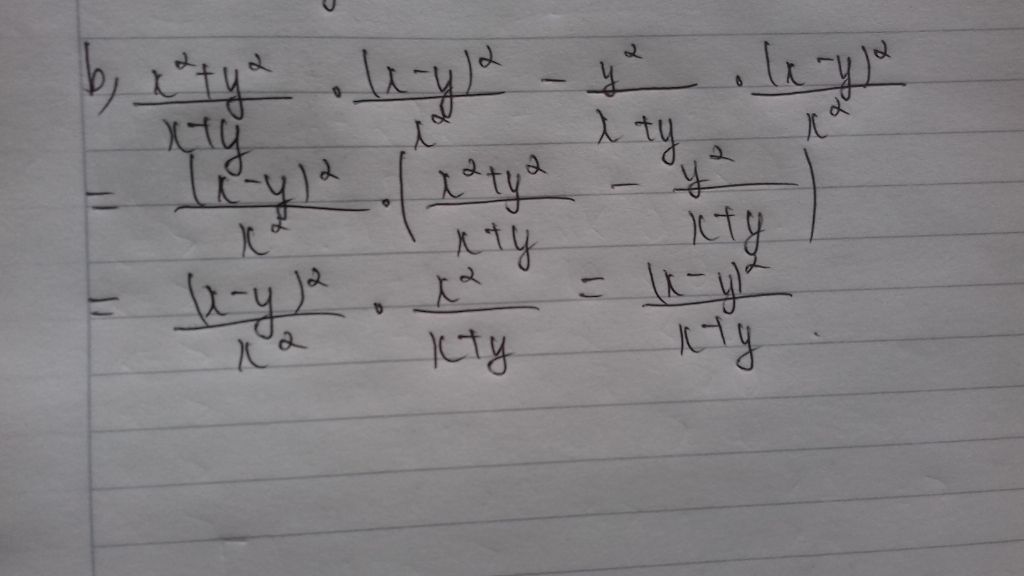 b, \frac{x^2+y^2}{x+y} \cdot \frac{(x-y)^2}{x^2} - \frac{y^2}{x+y} \cdot \frac{(x-y)^2}{x^2}
= \frac{(x-y)^2}{x^2} \cdot \left( \frac{x^2+y^2}{x+y} - \frac{y^2}{x+y} \right)
= \frac{(x-y)^2}{x^2} \cdot \frac{x^2}{x+y} = \frac{(x-y)^2}{x+y}.